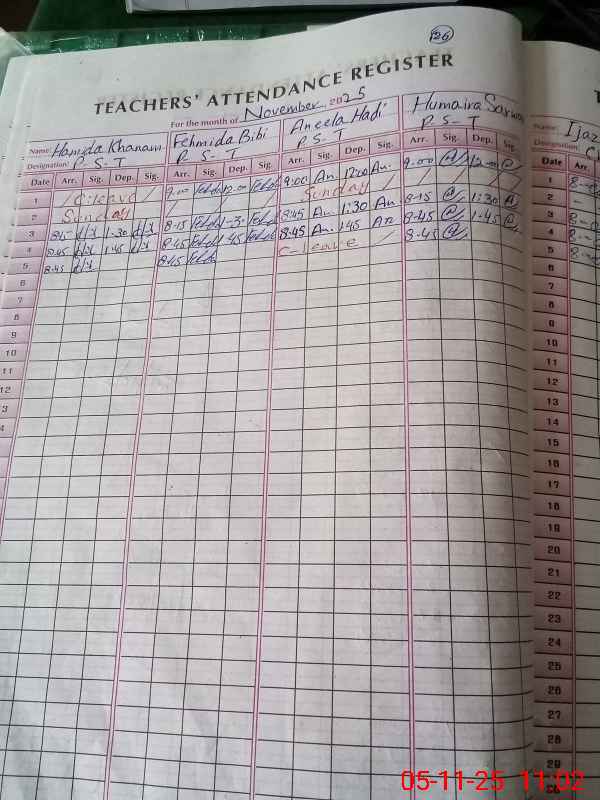 126
TEACHERS' ATTENDANCE REGISTER
For the month of November 2025
Name: Hamida Khanam Fehmida Bibi Aneela Hadi Humaira Name: Ijaz
Designation: P.S.T P.S-T P.S-T P.S.T Designation:
Date Arr. Sig. Dep. Sig. Arr. Sig. Dep. Sig. Arr. Sig. Dep. Sig. Arr. Sig. Dep. Sig. Date Arr.
1 C.leave 9.00 12.00 9:00 An. 12:00 An. 9-00 12-00 1
2 Sunday Sunday 2 -
3 8:45 1:30 8-15 1-30 8:45 An. 1:30 An 8-15 1:30 3
4 8:45 1:45 8.45 1.45 8:45 An. 1:45 An 8-45 1-45 4
5 8.45 8.45 C-leave 8.45 5
6 6
7 7
8 8
9 9
10 10
11 11
12 12
3 13
4 14
15
16
17
18
19
20
21
22
23
24
25
26
27
28
29
30
05-11-25 11:02